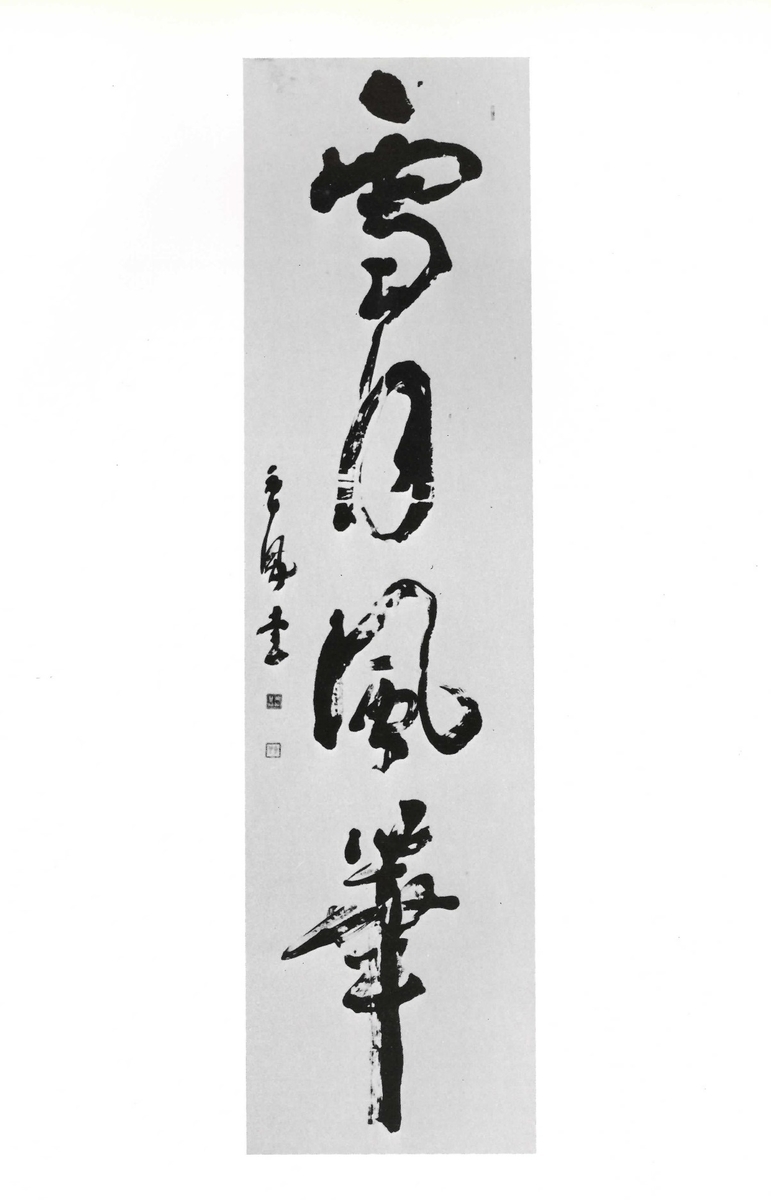 雪月風華